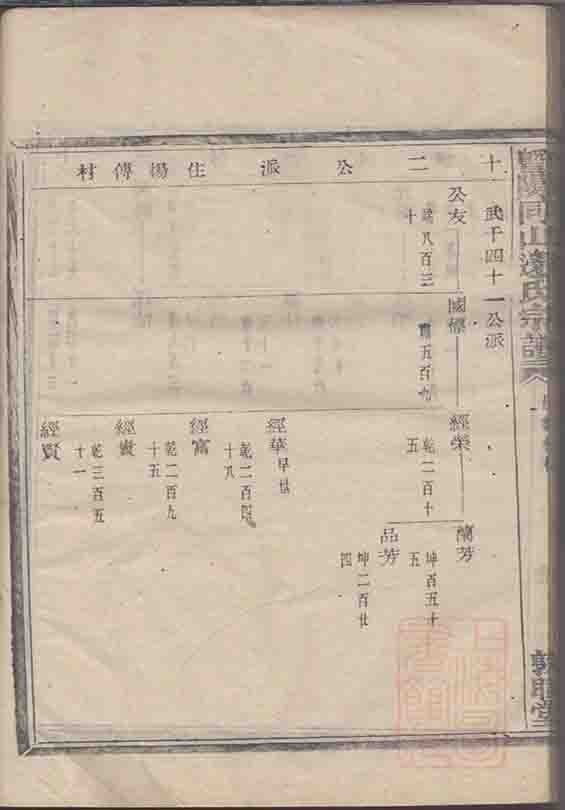 同山邊氏宗譜
十二公派住楊傅村
武千四十一公派
公友
八百三
十
國標
五百九
經榮
乾二百十
五
蘭芳
坤百五十
五
品芳
坤二百廿
四
經華早世
乾二百四
十八
經富
乾二百九
十五
經貴
乾三百五
十一
經賢